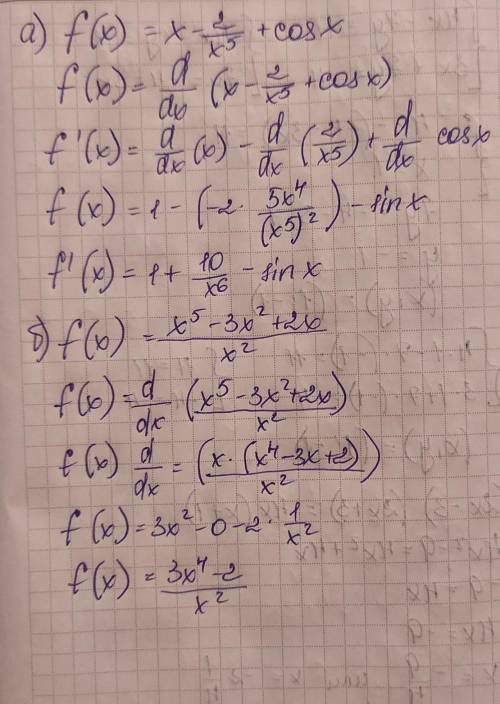 а) f(x) = x - 2/x⁵ + cosx
f(x) = d/dx (x - 2/x⁵ + cosx)
f'(x) = d/dx (x) - d/dx (2/x⁵) + d/dx cosx
f(x) = 1 - (-2 · 5x⁴/(x⁵)²) - sinx
f'(x) = 1 + 10/x⁶ - sinx
б) f(x) = x⁵ - 3x² + 2x/x²
f(x) = d/dx (x⁵ - 3x² + 2x/x²)
f(x) d/dx = (x · (x⁴ - 3x + 2)/x²)
f(x) = 3x² - 0 - 2 · 1/x²
f(x) = 3x⁴ - 2/x²